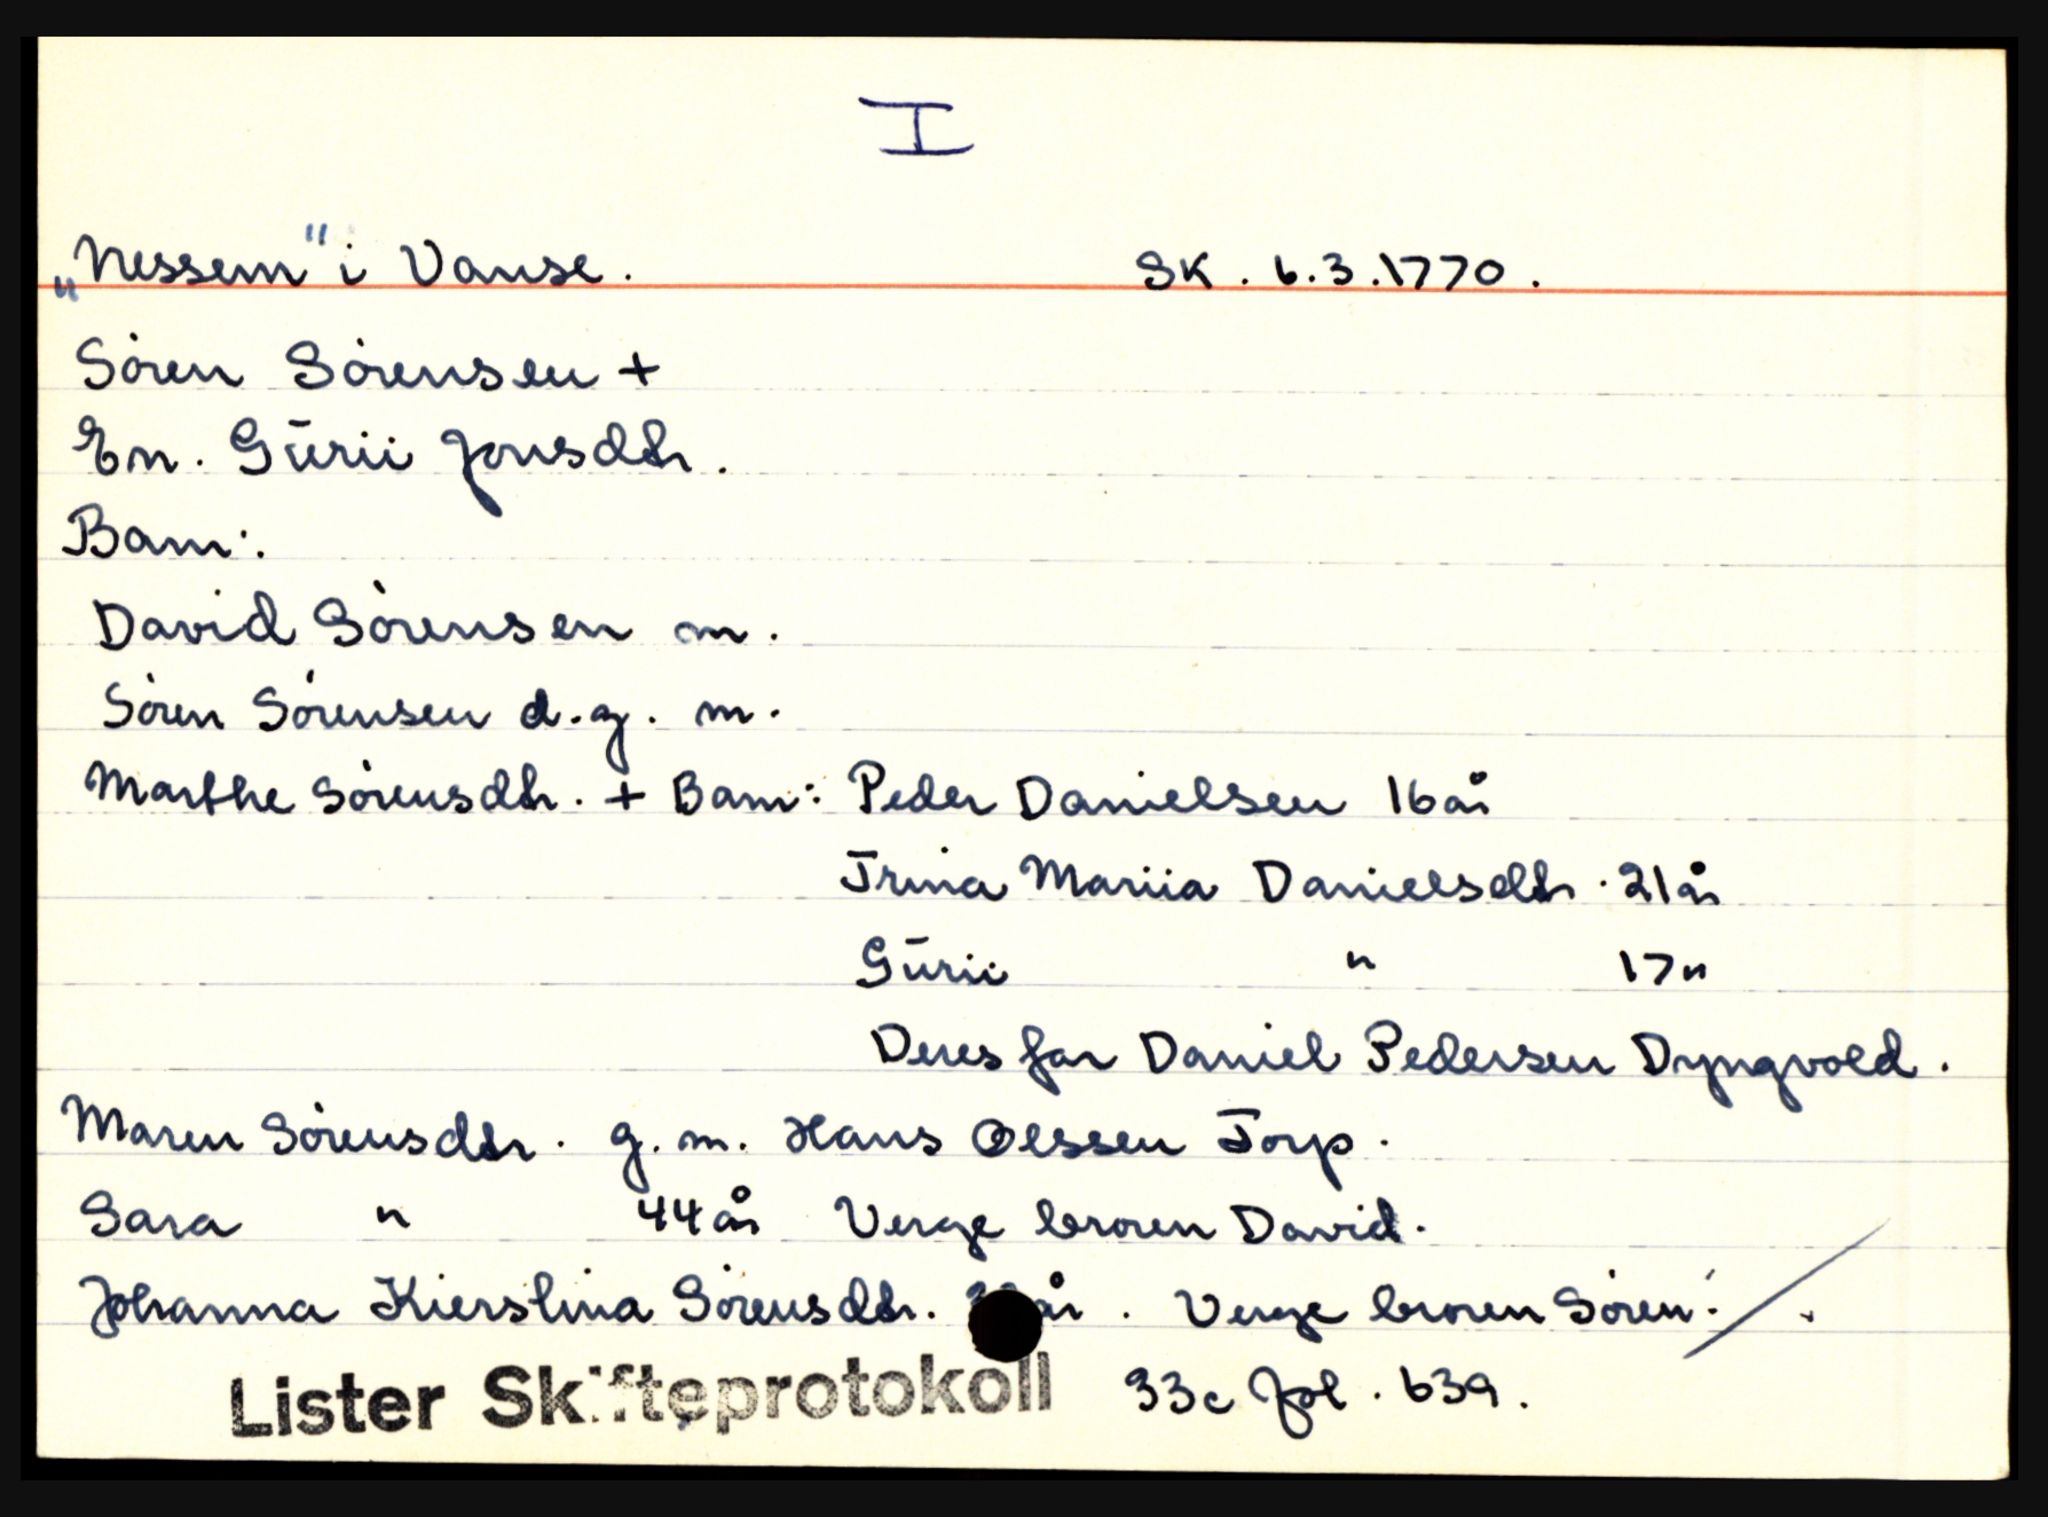 I
"Nessem" i Vanse. SK. 6.3.1770.
Sören Sörensen +
En. Gūrii Jonsdtr.
Barn:
David Sörensen m.
Sören Sörensen d.y. m.
Marthe Sörensdtr. + Barn: Peder Danielsen 16 år
Trina Mariia Danielsdtr. 21 år
Gūrii " 17 "
Deres far Daniel Pedersen Dyngvold.
Maren Sörensdtr. g.m. Hans Olssen Torp.
Sara " 44 år Verge broren David.
Johanna Kierstina Sörensdtr. år. Verge broren Sören.
Lister Skifteprotokoll 33c fol. 639.